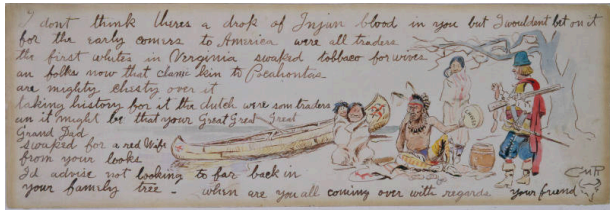 I dont think theres a drop of Injun blood in you but I wouldent bet on it
for the early comers to America were all traders
the first whites in Verginia swaped tobbaco for wives
an folks now that clame kin to Pocahontas
are mighty chesty over it
taking history for it the dutch were som traders
an it might be that your Great Great Great
Grand Dad
swaped for a red Wife
from your looks
Id advise not looking to far back in
your family tree - when are you all coming over with regards your friend
CMR